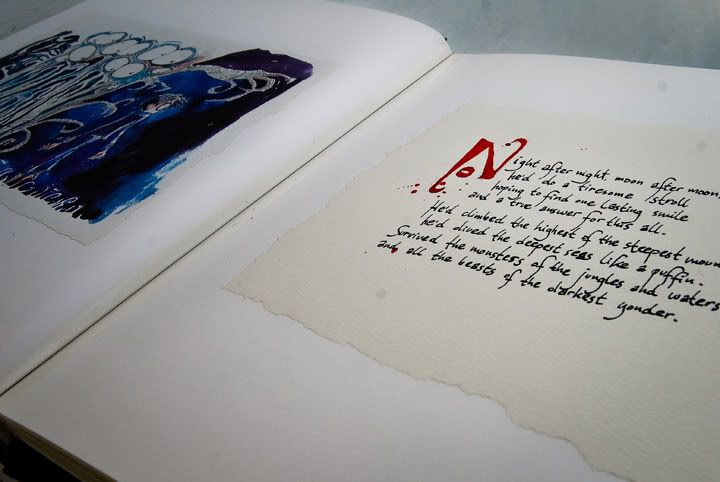 Night after night moon after moon,
he'd do a tiresome stroll
hoping to find one lasting smile
and a true answer for this all.
He'd climbed the highest of the steepest moun
he'd dived the deepest seas like a puffin.
Survived the monsters of the jungles and waters
and all the beasts of the darkest yonder.